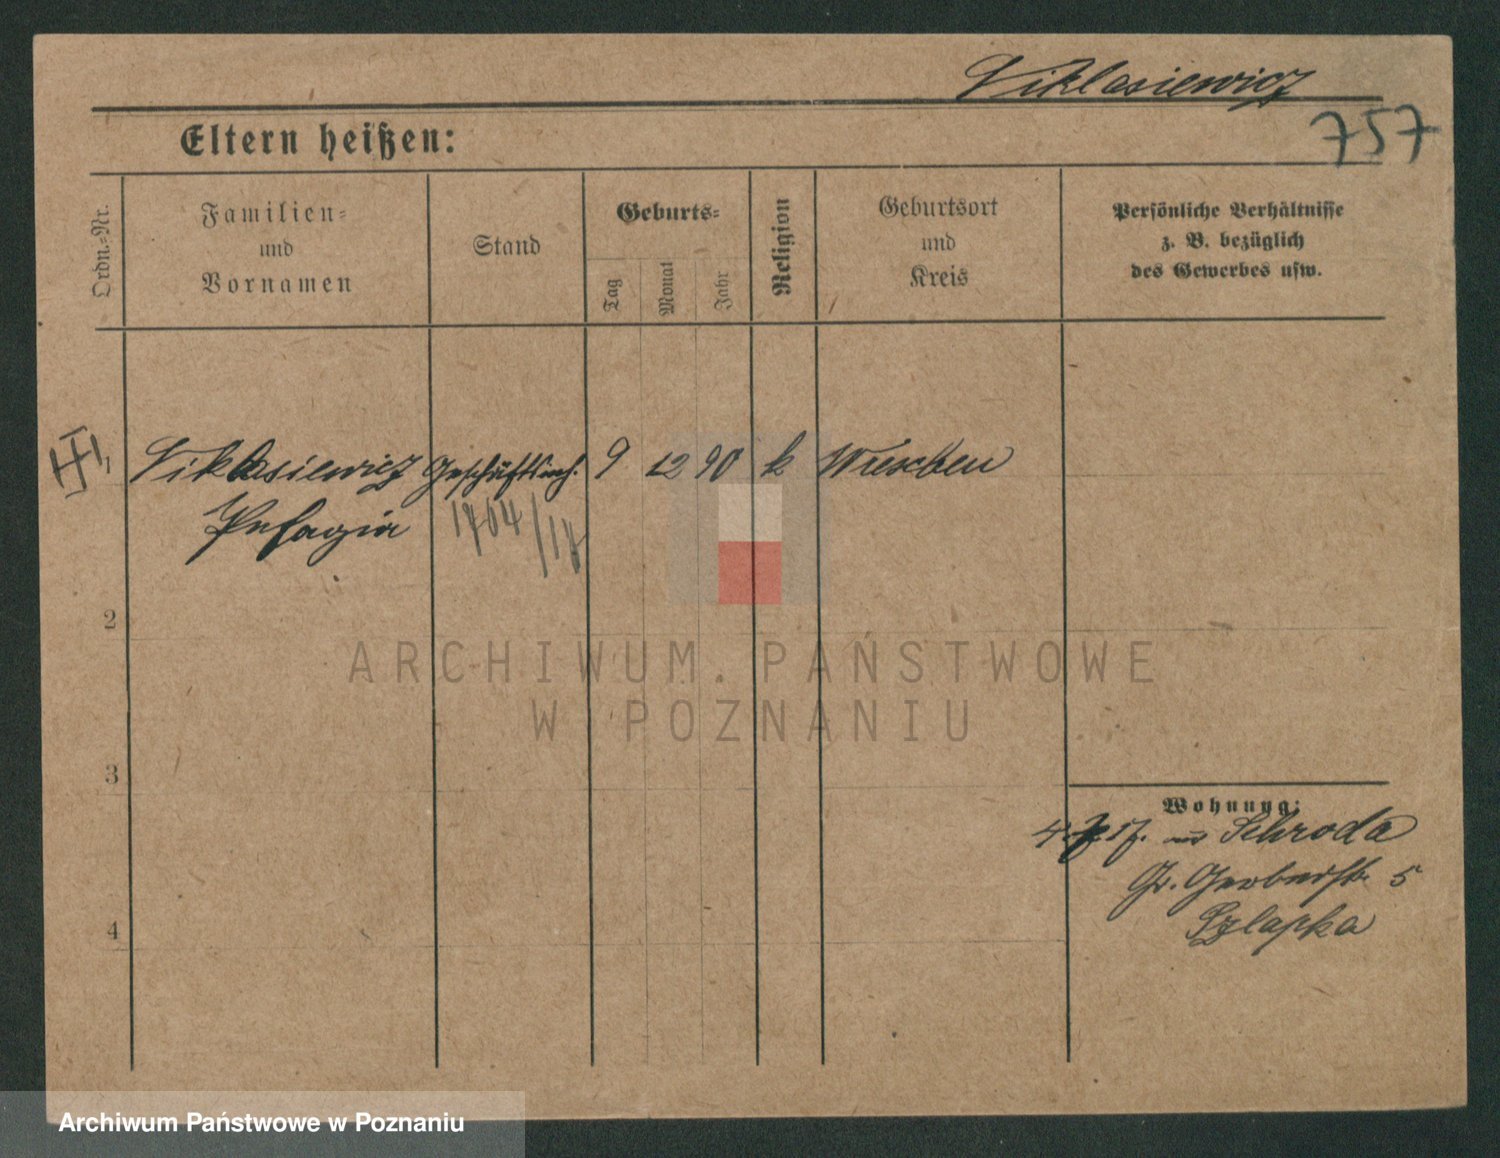 Viklasiewicz
757
Eltern heißen:
Ordn.=Nr.
Familien=
und
Vornamen
Stand
Geburts=
Tag
Monat
Jahr
Religion
Geburtsort
und
Kreis
Persönliche Verhältnisse
z. B. bezüglich
des Gewerbes usw.
1 Viklasiewicz 9 12 90 k Wreschen
Pelagia 1704/17
2
ARCHIWUM PAŃSTWOWE
W POZNANIU
3
Wohnung:
Schroda
Gr. Gerberstr. 5
Szlapka
4
Archiwum Państwowe w Poznaniu